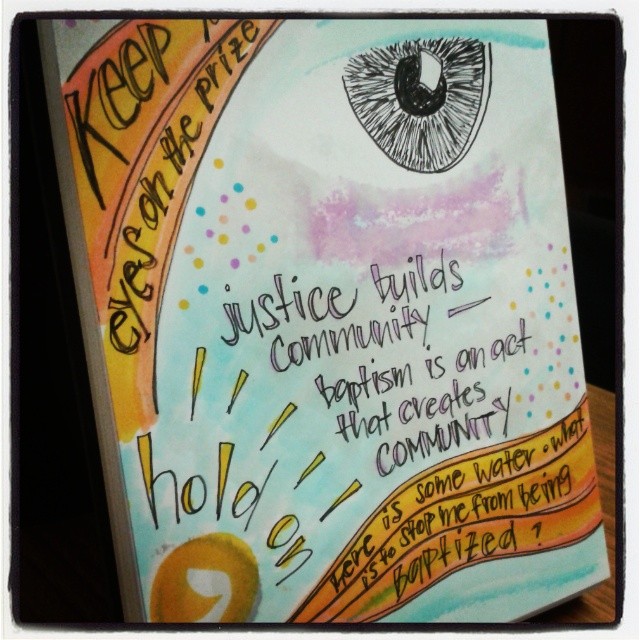 Keep
eyes on the prize
justice builds
community —
baptism is an act
that creates
COMMUNITY
hold on
here is some water. what
is to stop me from being
baptized?